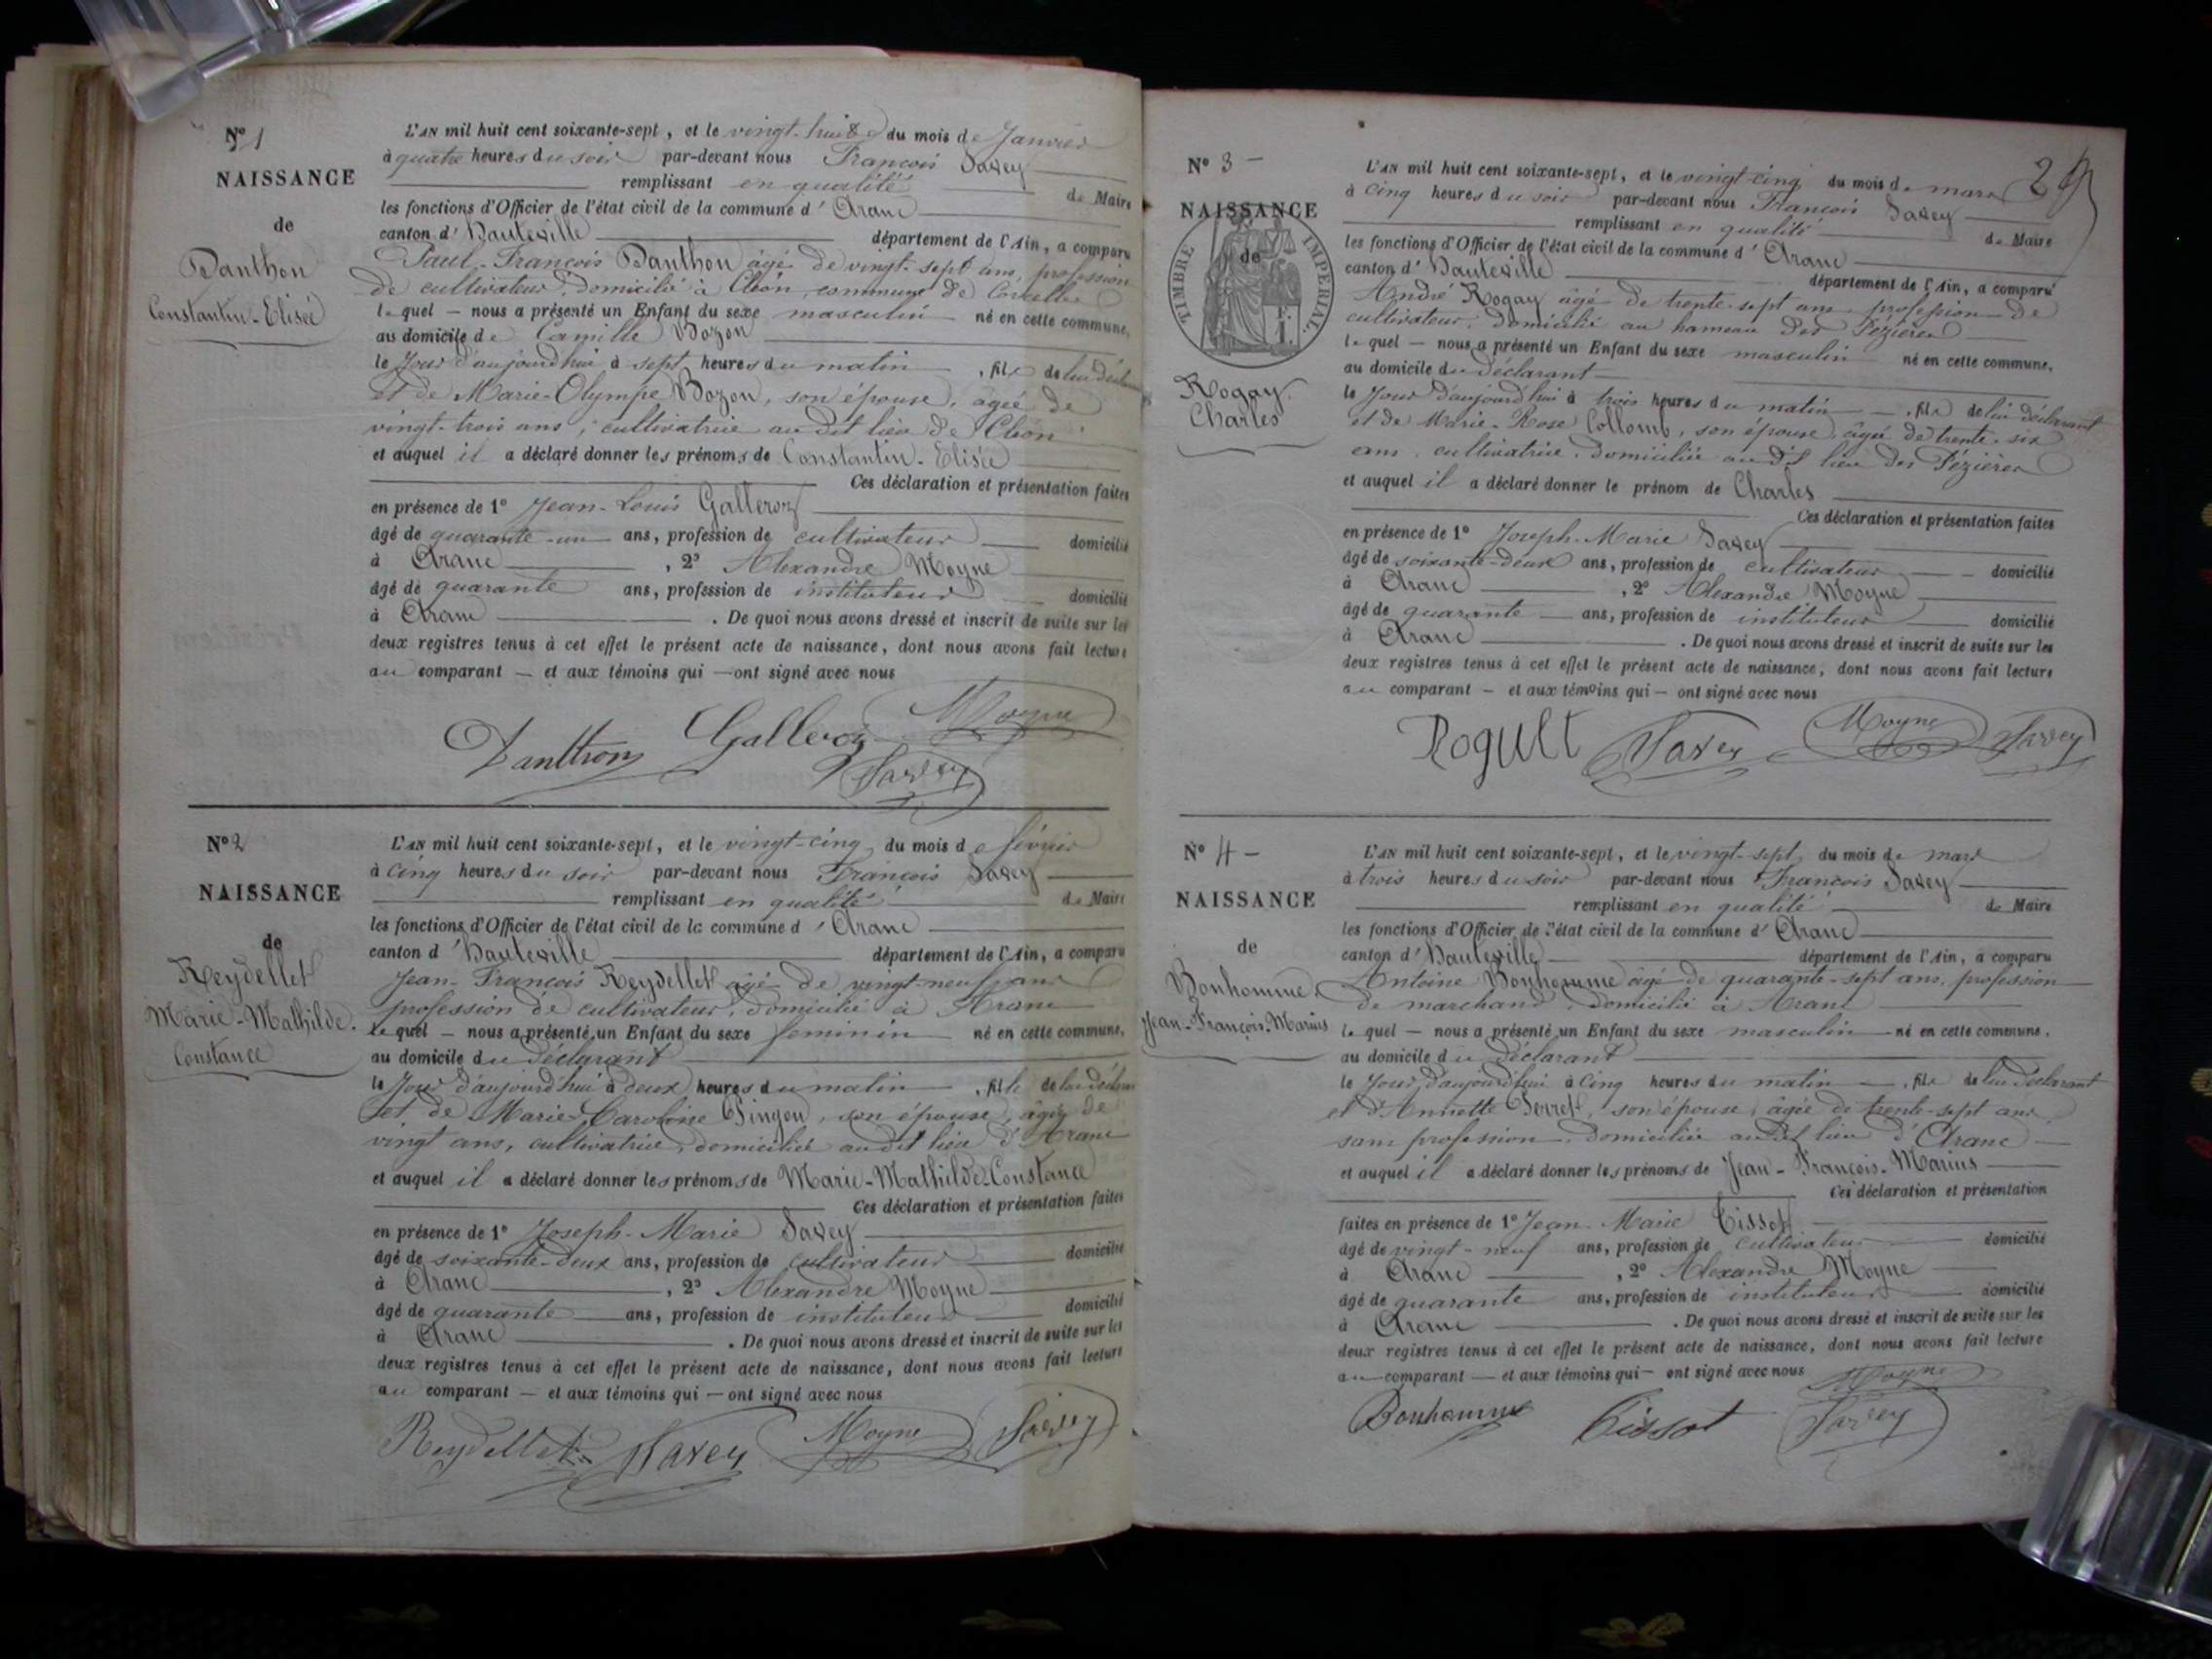 N° 1
NAISSANCE
de
Danthon
Constantin-Elisée
L'AN mil huit cent soixante-sept, et le vingt-huit du mois de Janvier
à quatre heures du soir par-devant nous François Savey
remplissant en qualité de Maire
les fonctions d'Officier de l'état civil de la commune d'Aranc
canton d'Hauteville département de l'Ain, a comparu
Paul-François Danthon âgé de vingt-sept ans, profession
de cultivateur, domicilié à Cléon, commune de Corcelles
lequel — nous a présenté un Enfant du sexe masculin né en cette commune,
au domicile de Camille Bozon
le Jour d'aujourd'hui à sept heures du matin, fils de lui déclarant
et de Marie-Olympe Bozon, son épouse, âgée de
vingt-trois ans, cultivatrice au dit lieu de Cléon
et auquel il a déclaré donner les prénoms de Constantin-Elisée
Ces déclaration et présentation faites
en présence de 1° Jean-Louis Galleroz
âgé de quarante-un ans, profession de cultivateur domicilié
à Aranc, 2° Alexandre Moyne
âgé de quarante ans, profession de instituteur domicilié
à Aranc. De quoi nous avons dressé et inscrit de suite sur les
deux registres tenus à cet effet le présent acte de naissance, dont nous avons fait lecture
au comparant — et aux témoins qui — ont signé avec nous
Danthon Galleroz Moyne
Savey
N° 2
NAISSANCE
de
Reydellet
Marie-Mathilde.
Constance
L'AN mil huit cent soixante-sept, et le vingt-cinq du mois de février
à cinq heures du soir par-devant nous François Savey
remplissant en qualité de Maire
les fonctions d'Officier de l'état civil de la commune d'Aranc
canton d'Hauteville département de l'Ain, a comparu
Jean-François Reydellet âgé de vingt-neuf ans
profession de cultivateur, domicilié à Aranc
lequel — nous a présenté un Enfant du sexe féminin né en cette commune,
au domicile du déclarant
le Jour d'aujourd'hui à deux heures du matin, fille de lui déclarant
et de Marie-Caroline Pingeon, son épouse, âgée de
vingt ans, cultivatrice, domiciliée au dit lieu d'Aranc
et auquel il a déclaré donner les prénoms de Marie-Mathilde-Constance
Ces déclaration et présentation faites
en présence de 1° Joseph-Marie Savey
âgé de soixante-deux ans, profession de cultivateur domicilié
à Aranc, 2° Alexandre Moyne
âgé de quarante ans, profession de instituteur domicilié
à Aranc. De quoi nous avons dressé et inscrit de suite sur les
deux registres tenus à cet effet le présent acte de naissance, dont nous avons fait lecture
au comparant — et aux témoins qui — ont signé avec nous
Reydellet Savey Moyne Savey
2
N° 3 -
NAISSANCE
de
TIMBRE IMPERIAL.
Rogay
Charles
L'AN mil huit cent soixante-sept, et le vingt-cinq du mois de mars
à cinq heures du soir par-devant nous François Savey
remplissant en qualité de Maire
les fonctions d'Officier de l'état civil de la commune d'Aranc
canton d'Hauteville département de l'Ain, a comparu
André Rogay âgé de trente-sept ans, profession de
cultivateur, domicilié au hameau des Pézières
lequel — nous a présenté un Enfant du sexe masculin né en cette commune,
au domicile du déclarant
le Jour d'aujourd'hui à trois heures du matin, fils de lui déclarant
et de Marie-Rose Collomb, son épouse, âgée de trente-six
ans, cultivatrice, domiciliée au dit lieu des Pézières
et auquel il a déclaré donner le prénom de Charles
Ces déclaration et présentation faites
en présence de 1° Joseph-Marie Savey
âgé de soixante-deux ans, profession de cultivateur domicilié
à Aranc, 2° Alexandre Moyne
âgé de quarante ans, profession de instituteur domicilié
à Aranc. De quoi nous avons dressé et inscrit de suite sur les
deux registres tenus à cet effet le présent acte de naissance, dont nous avons fait lecture
au comparant — et aux témoins qui — ont signé avec nous
Savey Moyne Savey
N° 4 -
NAISSANCE
de
Bonhomme
Jean-François-Marius
L'AN mil huit cent soixante-sept, et le vingt-sept du mois de mars
à trois heures du soir par-devant nous François Savey
remplissant en qualité de Maire
les fonctions d'Officier de l'état civil de la commune d'Aranc
canton d'Hauteville département de l'Ain, a comparu
Antoine Bonhomme âgé de quarante-sept ans, profession
de marchand, domicilié à Aranc
lequel — nous a présenté un Enfant du sexe masculin né en cette commune,
au domicile du déclarant
le Jour d'aujourd'hui à cinq heures du matin, fils de lui déclarant
et d'Annette Perret, son épouse, âgée de trente-sept ans
sans profession, domiciliée au dit lieu d'Aranc
et auquel il a déclaré donner les prénoms de Jean-François-Marius
Ces déclaration et présentation
faites en présence de 1° Jean-Marie Tissot
âgé de vingt-neuf ans, profession de cultivateur domicilié
à Aranc, 2° Alexandre Moyne
âgé de quarante ans, profession de instituteur domicilié
à Aranc. De quoi nous avons dressé et inscrit de suite sur les
deux registres tenus à cet effet le présent acte de naissance, dont nous avons fait lecture
au comparant — et aux témoins qui — ont signé avec nous Moyne
Bonhomme Tissot Savey